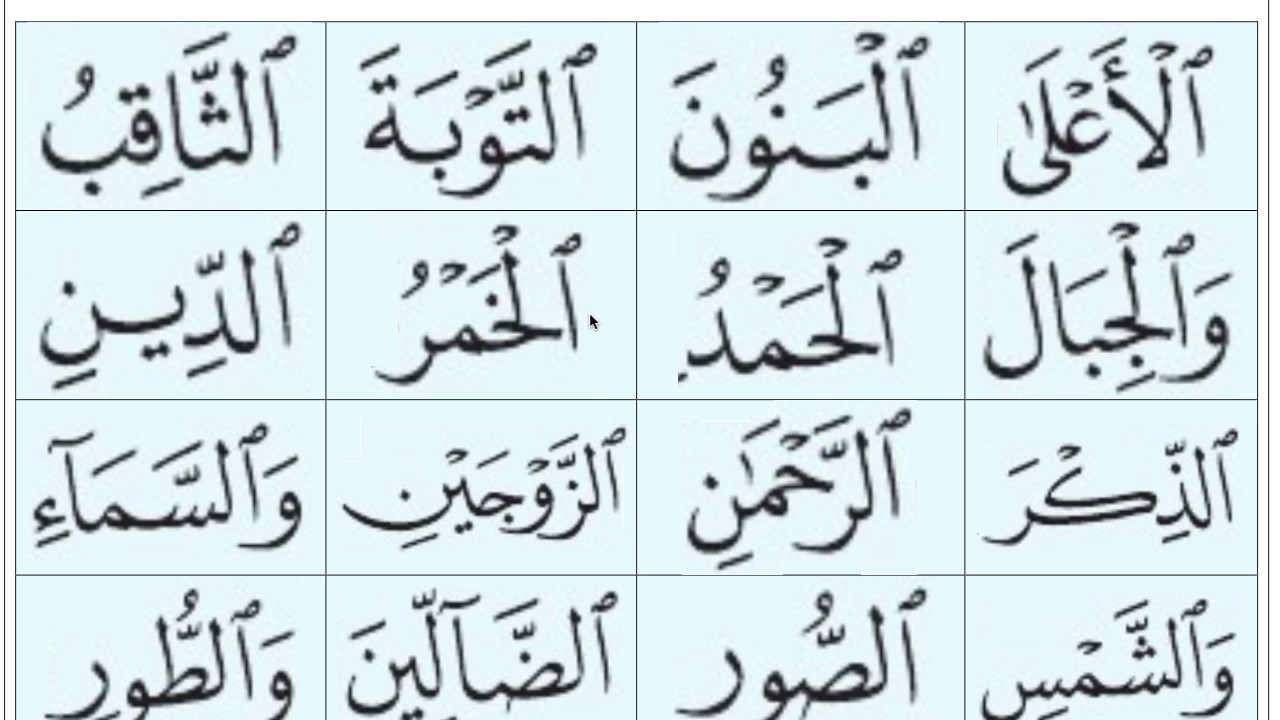 ٱلْأَعْلَىٰ ٱلْبَنُونَ ٱلتَّوْبَةَ ٱلثَّاقِبُ
وَٱلْجِبَالَ ٱلْحَمْدُ ٱلْخَمْرُ ٱلدِّينِ
ٱلذِّكْرَ ٱلرَّحْمَٰنِ ٱلزَّوْجَيْنِ وَٱلسَّمَآءِ
وَٱلشَّمْسِ ٱلصُّورِ ٱلضَّآلِّينَ وَٱلطُّورِ